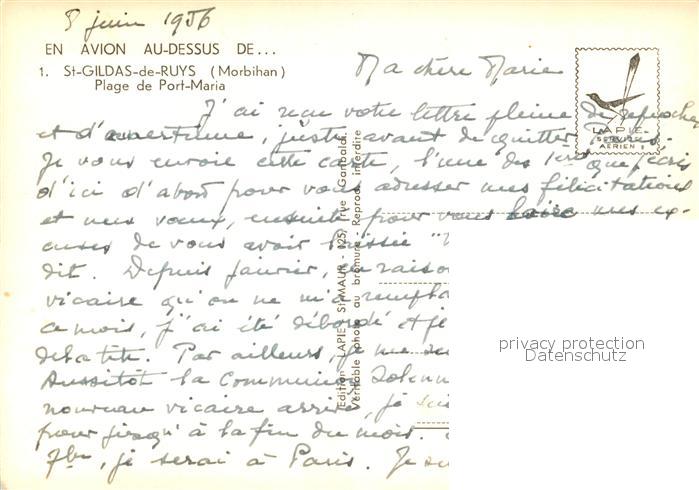 8 juin 1956
EN AVION AU-DESSUS DE...
1. St-GILDAS-de-RUYS (Morbihan)
Plage de Port-Maria
Ma chère Marie
LAPIE
SERVICE
AERIEN
J'ai reçu votre lettre pleine de reproches
et d'amertume, juste avant de quitter Paris.
Je vous envoie cette carte, l'une des 1ères que j'écris
d'ici d'abord pour vous adresser mes félicitations
et mes vœux, ensuite pour vous faire mes ex-
cuses de vous avoir laissée
dit. Depuis Janvier, en raison
vicaire qu'on ne m'a rempla
ce mois, j'ai été débordé et je
de la tête. Par ailleurs, je me
Aussitôt la Communion Solenn
nouveau vicaire arrivé, je suis
pour jusqu'à la fin du mois.
7bre, je serai à Paris. Je
Edition LAPIE St-MAUR - 125, rue Garibaldi
Véritable photo au bromure - Reprod. interdite
privacy protection
Datenschutz